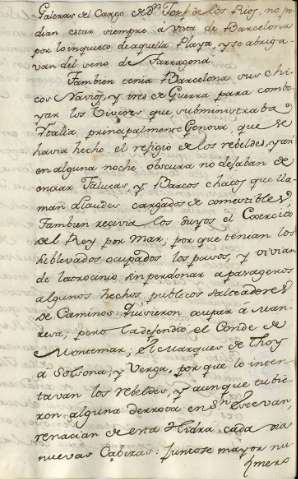 Galeras del Cargo de Dn. Josef de los Rios, no po
dian estar siempre à vista de Barcelona
por lo inquieto de aquella Playa, y se abriga
van del seno de Tarragona.
Tambien tenia Barcelona sus chi
cos Navios, y tres de Guerra para combo
yar los Viveres que subministraba
Italia principalmente Genova, que se
havia hecho el refugio de los rebeldes, y aun
en alguna noche obscura no dejaban de
entrar Falucas, y Barcos chatos que lla
man Laudes cargados de comestibles
Tambien recevia los suyos el Exercito
del Rey por Mar, por que tenian los
Sublevados ocupados los pasos, y vivian
de latrocinio sin perdonar a pasageros
algunos hechos publicos salteadores
de Caminos. Quisieron ocupar à Man
resa, pero la defendio el Conde de
Montemar, el Marques de Thoy
à Solsona, y Verga, por que lo inten
tavan los rebeldes, y aunque tubie
ron alguna derrota en Sn. Estevan,
renacian de esta Hidra cada dia
nuevas Cabezas. Juntose mayor nu
mero